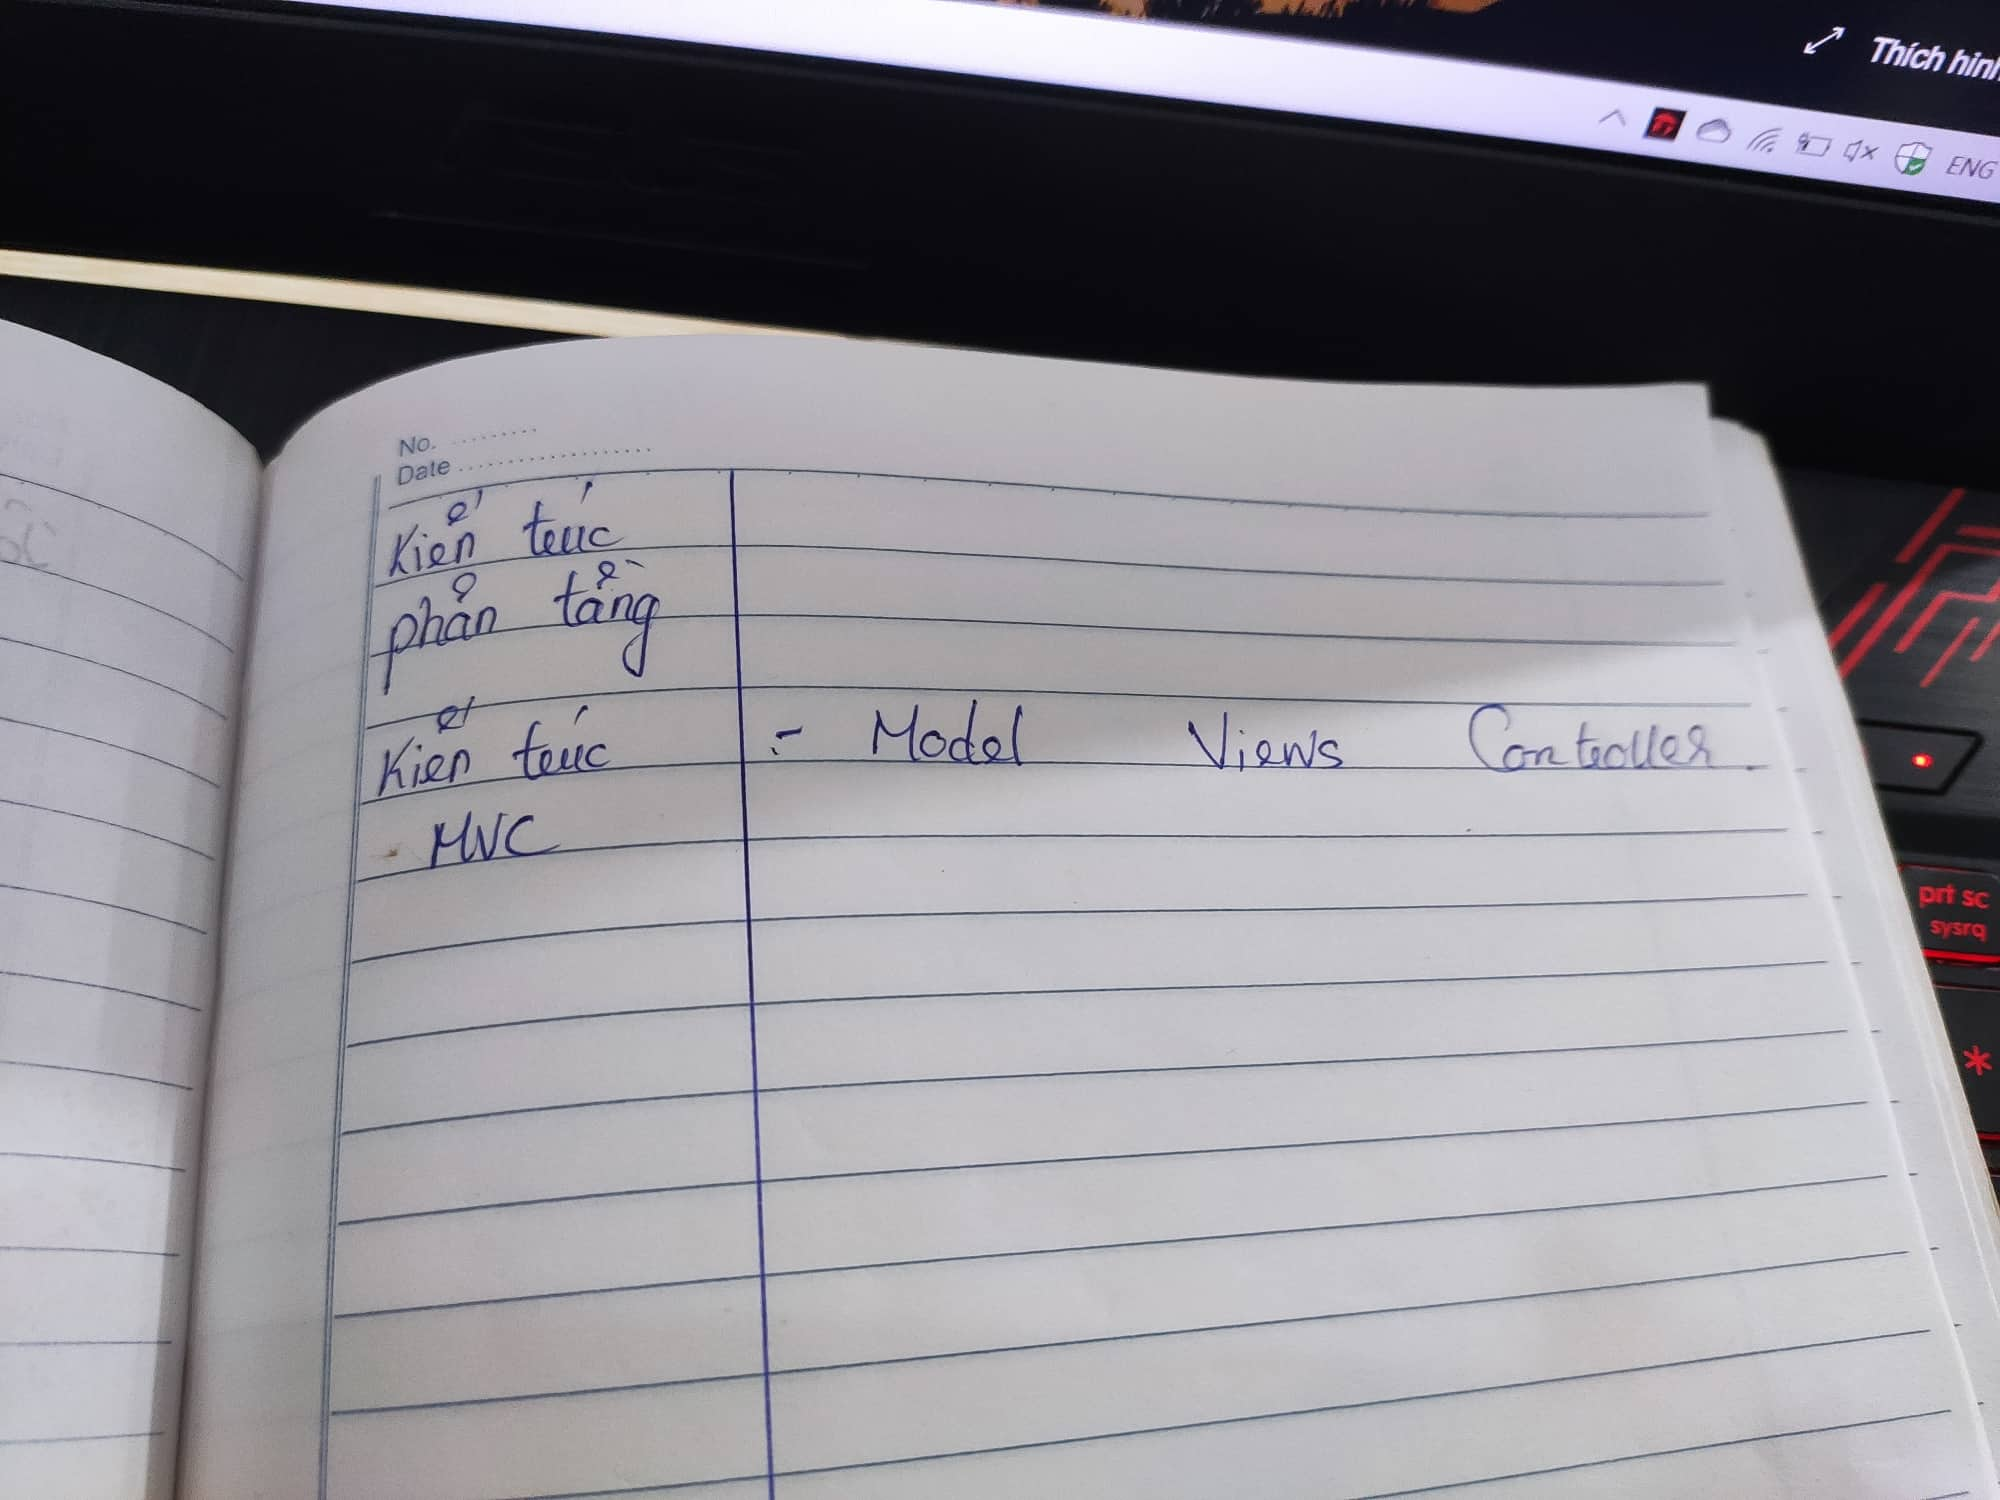 Thích hình
ENG
No. ..........
Date .....................
Kiến trúc
phân tầng
Kiến trúc :- Model Views Controller.
MVC
prt sc
sysrq
*